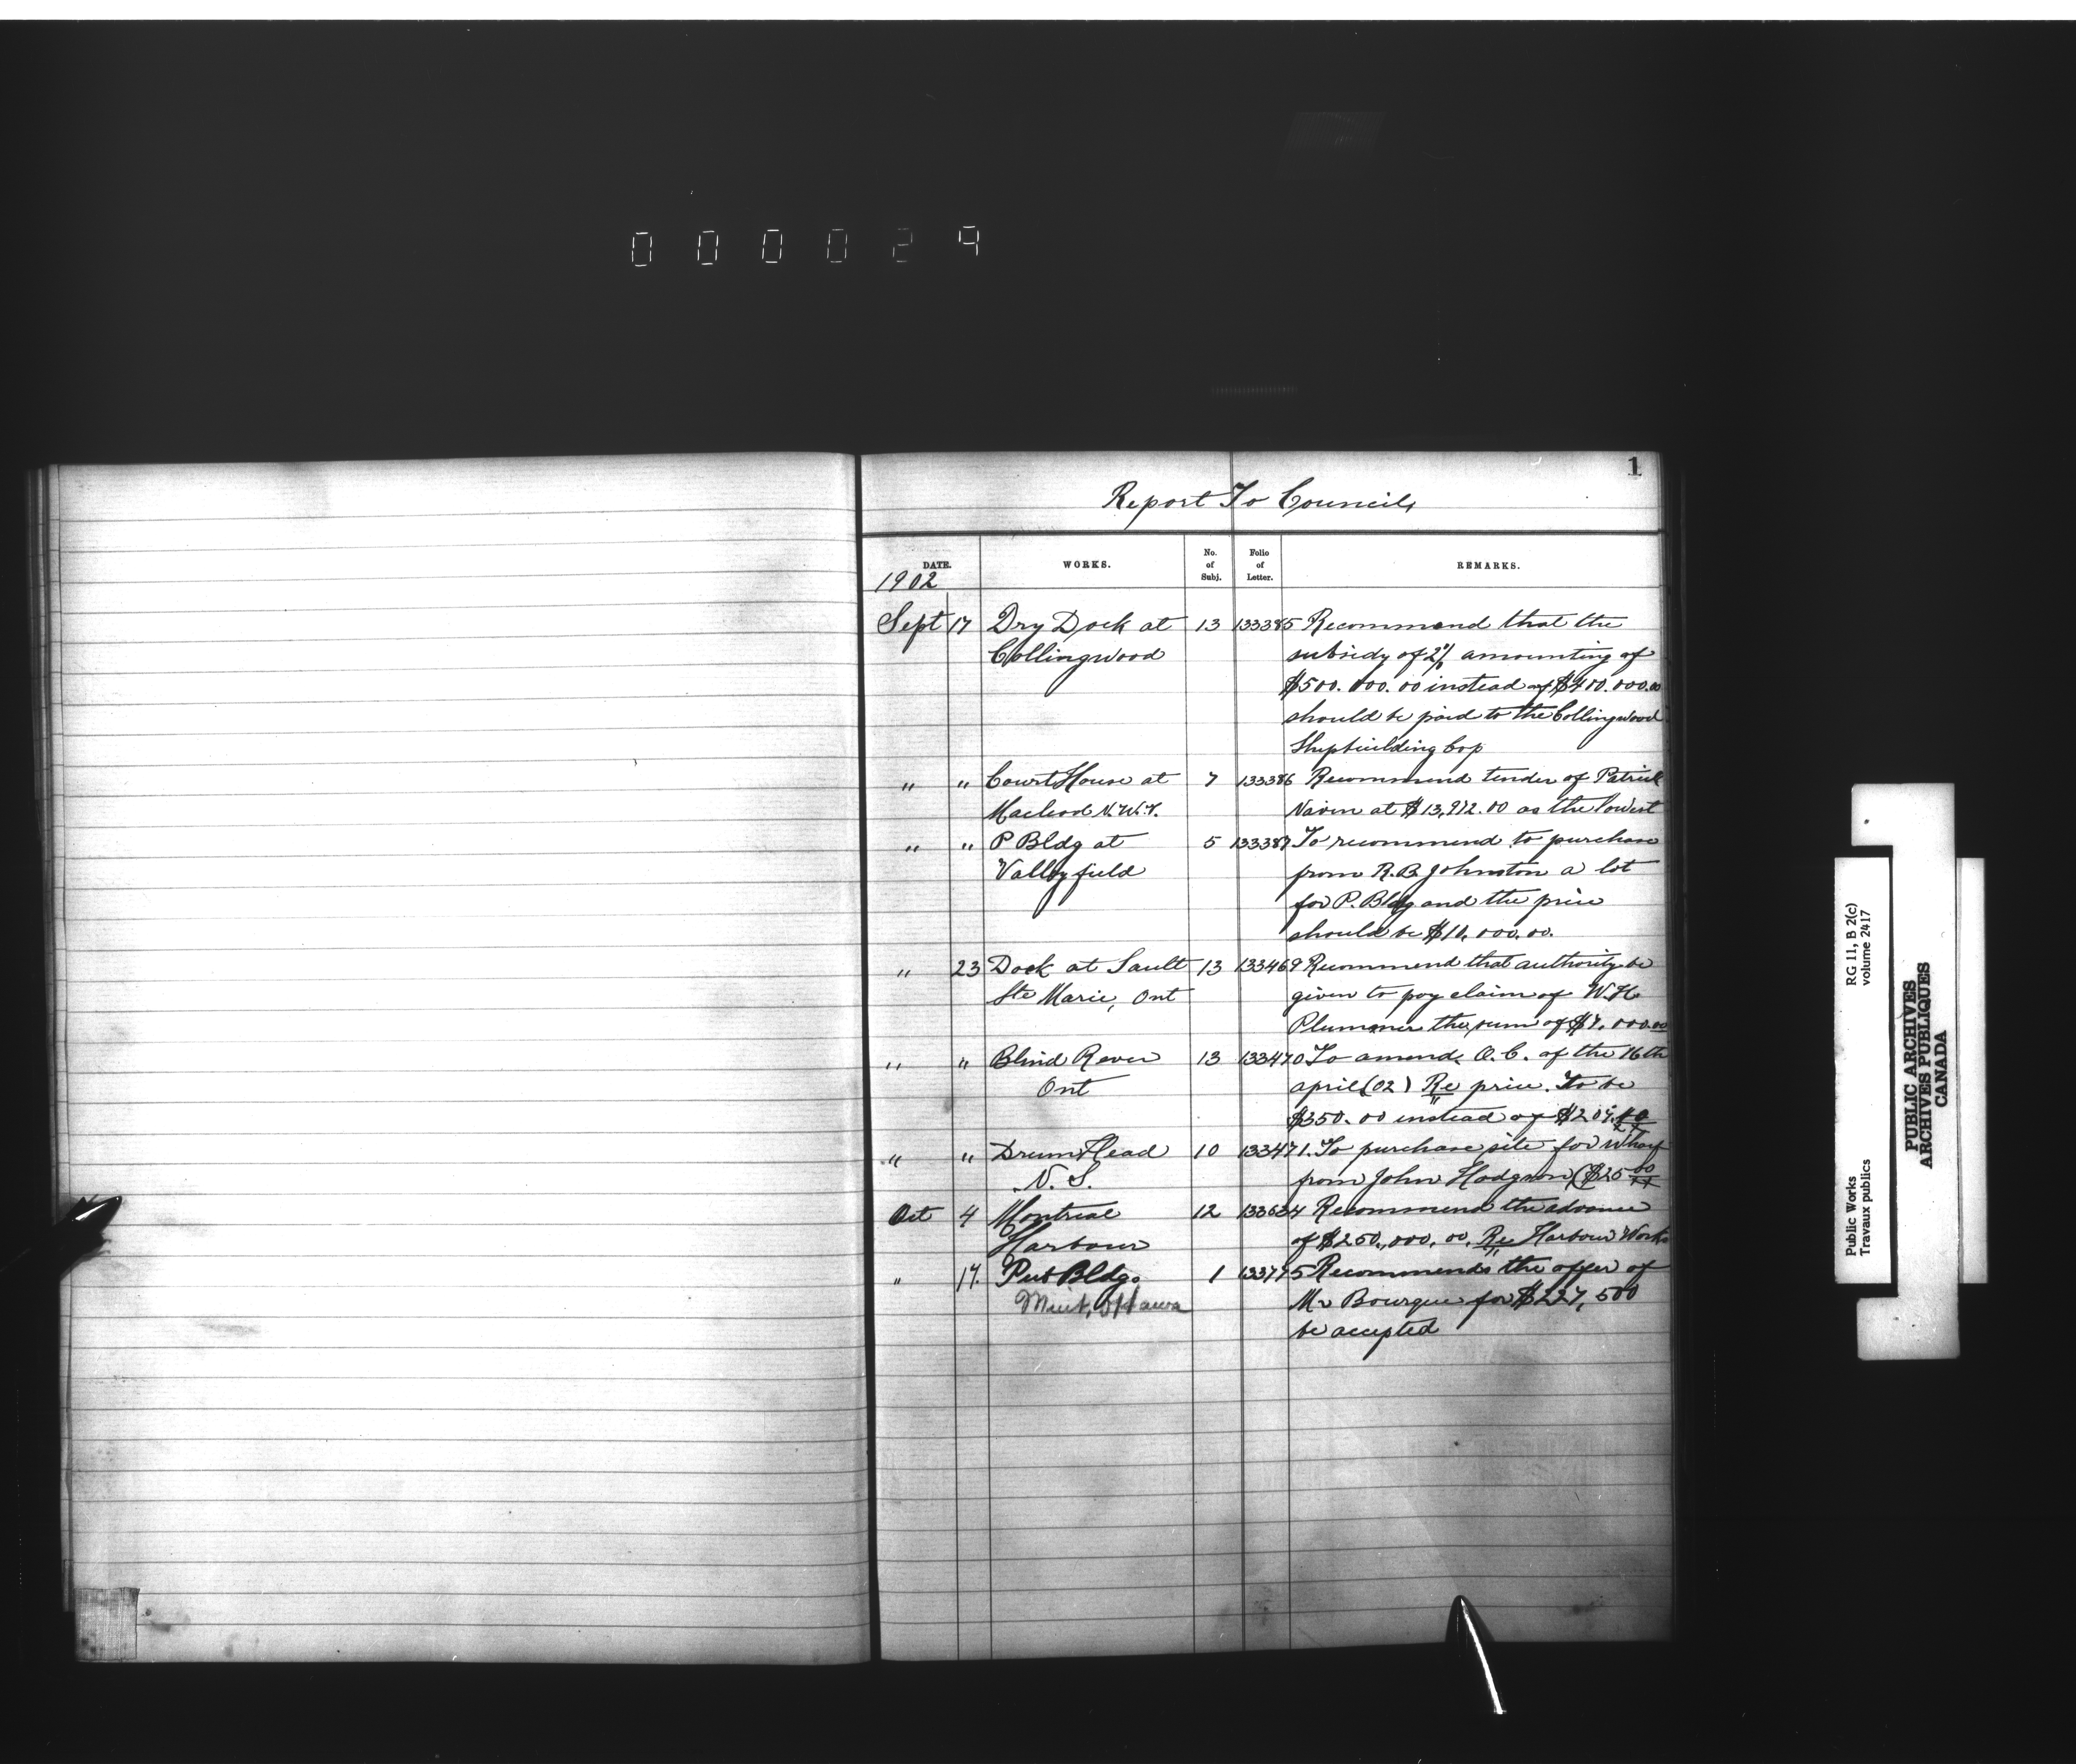 000029
1
Report To Council,
DATE. WORKS. No. of Subj. Folio of Letter. REMARKS.
1902
Sept 17 Dry Dock at 13 133385 Recommend that the
Collingwood subsidy of 2% amounting of
$500.000.00 instead of $400.000.00
should be paid to the Collingwood
Shipbuilding Cop
" " Court House at 7 133386 Recommend tender of Patrick
Macleod N.W.T. Naven at $13,912.00 as the lowest
" " P Bldg at 5 133387 To recommend to purchase
Valleyfield from R.B. Johnston a lot
for P. Bldg and the price
should be $10,000.00.
" 23 Dock at Sault 13 133469 Recommend that authority be
Ste Marie, Ont given to pay claim of W.H.
Plummer the sum of $7,000.00
" " Blind River 13 133470 To amend O.C. of the 16th
Ont april (02) Re price. To be
$350.00 instead of
" " Drum Head 10 133471. To purchase site for wharf
N.S. from John Hodgson ($25 00
Oct 4 Montreal 12 133634 Recommend the advance
Harbour of $250,000,00. Re Harbour Works
" 17. Pub Bldg. 1 133775 Recommends the offer of
Mint, Ottawa Mr Bourque for $227,500
be accepted
Public Works RG 11, B 2(c)
Travaux publics volume 2417
PUBLIC ARCHIVES
ARCHIVES PUBLIQUES
CANADA